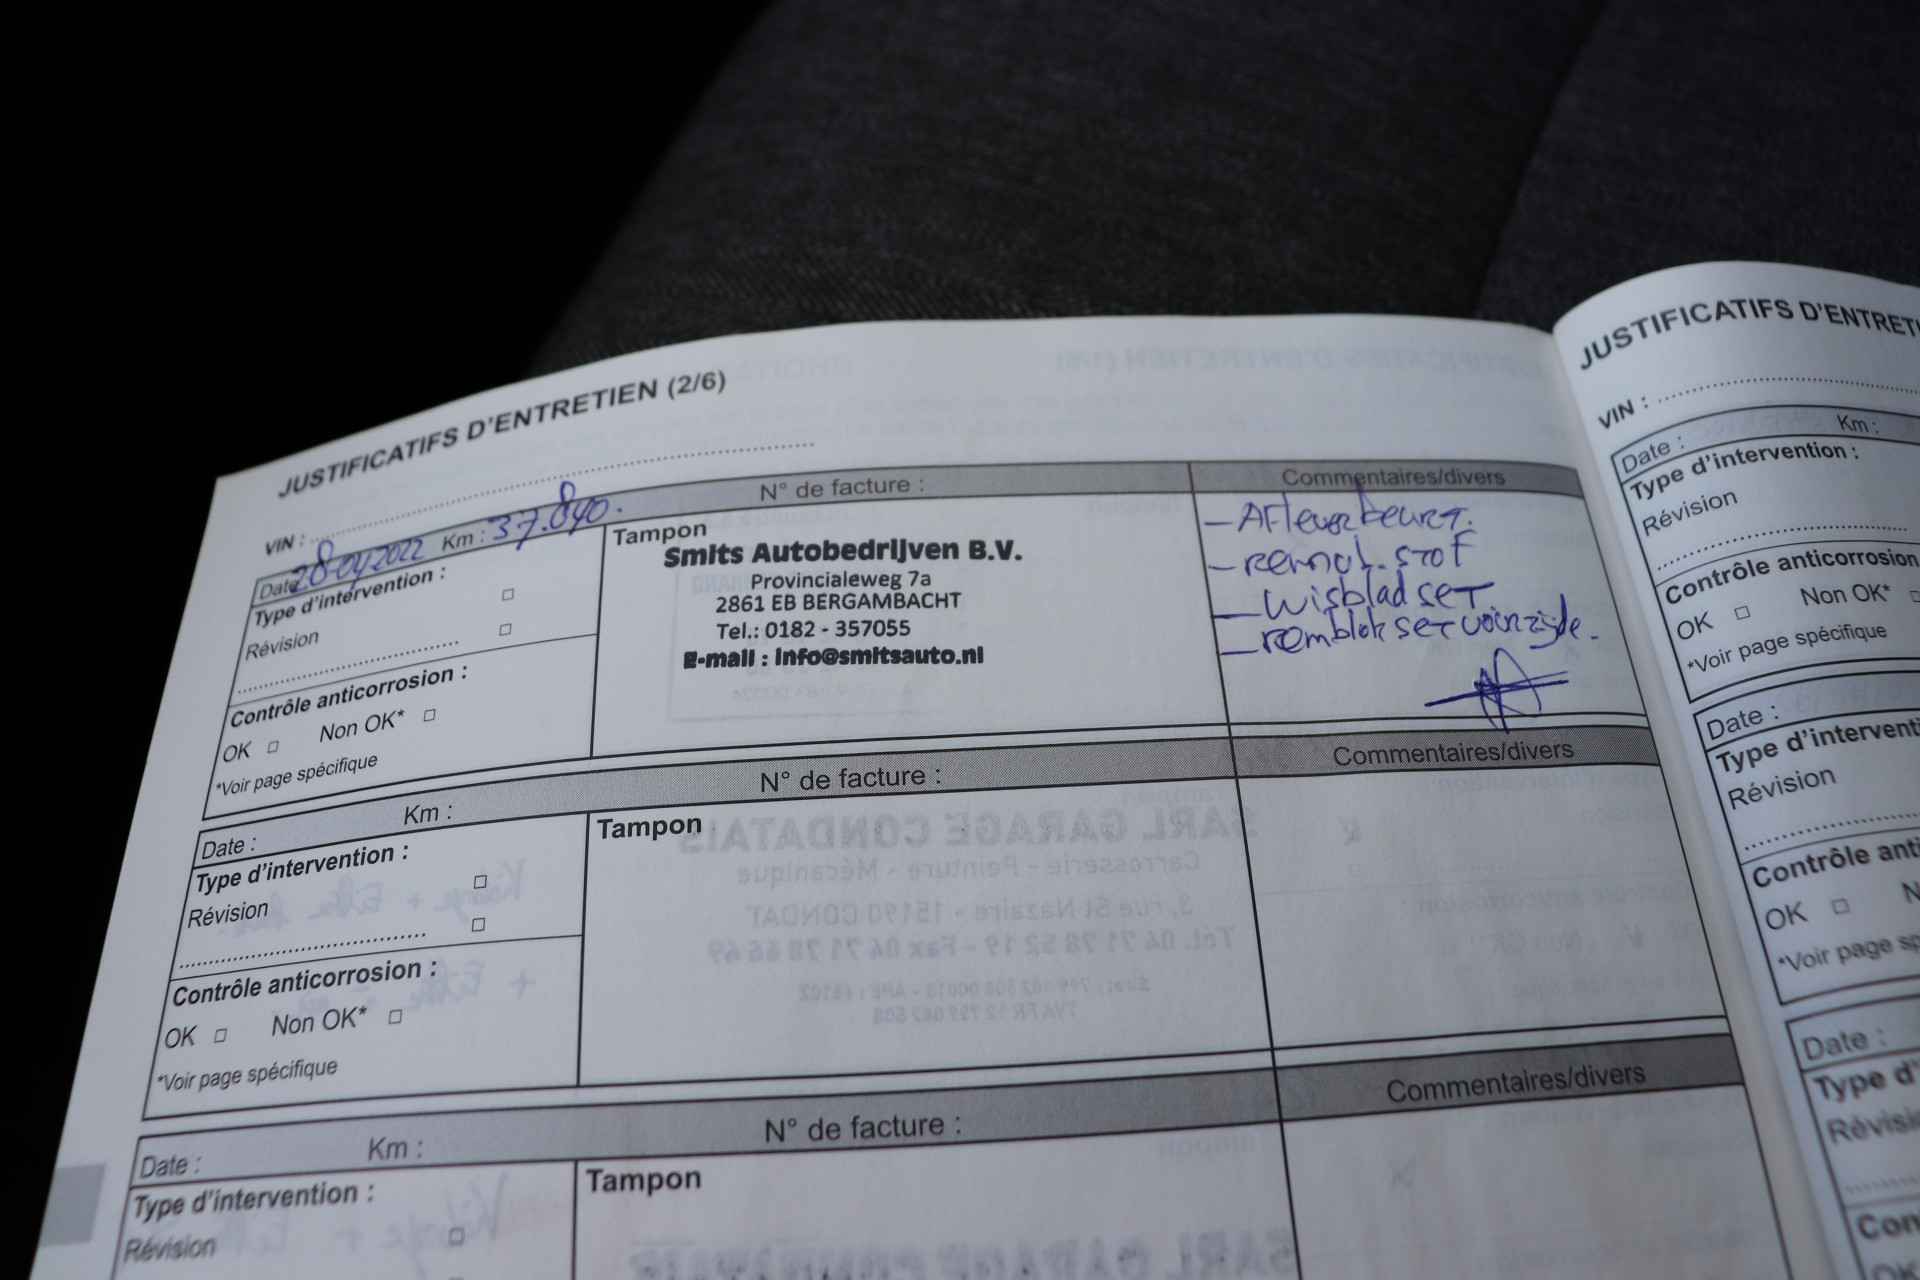 JUSTIFICATIFS D'ENTRETIEN (2/6)
VIN :
Date 28-04-2022 Km : 37.840. N° de facture : Commentaires/divers
Type d'intervention :
Révision
Contrôle anticorrosion :
OK Non OK*
*Voir page spécifique
Tampon
Smits Autobedrijven B.V.
Provincialeweg 7a
2861 EB BERGAMBACHT
Tel.: 0182 - 357055
E-mail : info@smitsauto.nl
- Afleverbeurt.
- remvl. stof
- wisblad set
- remblok set voorzijde.
Date : Km : N° de facture : Commentaires/divers
Type d'intervention :
Révision
Contrôle anticorrosion :
OK Non OK*
*Voir page spécifique
Tampon
Date : Km : N° de facture : Commentaires/divers
Type d'intervention :
Révision
Tampon
JUSTIFICATIFS D'ENTRETI
VIN :
Date : Km :
Type d'intervention :
Révision
Contrôle anticorrosion
OK Non OK*
*Voir page spécifique
Date :
Type d'interventi
Révision
Contrôle anti
OK N
*Voir page sp
Date :
Type d'
Révisi
Con
OK